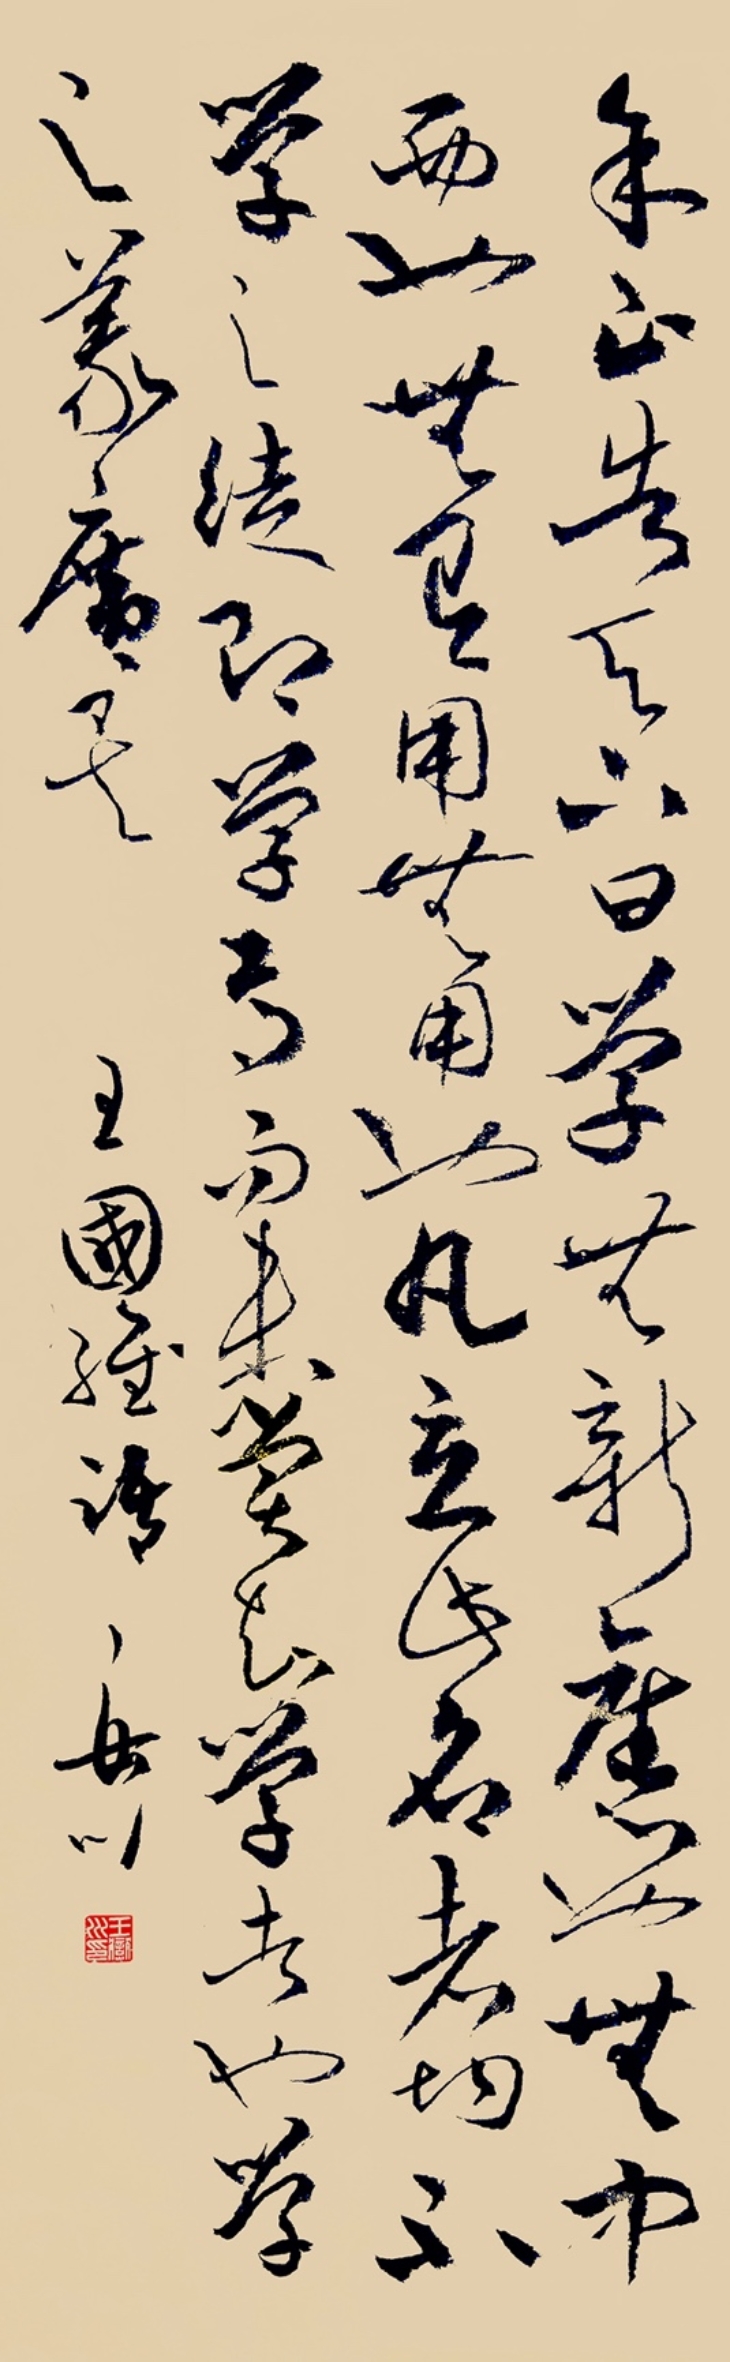 余正告天下曰學無新舊也無中
西也無有用無用也凡立此名者均不
學之徒即學焉而未嘗知學者也學
之義廣矣
王國維語